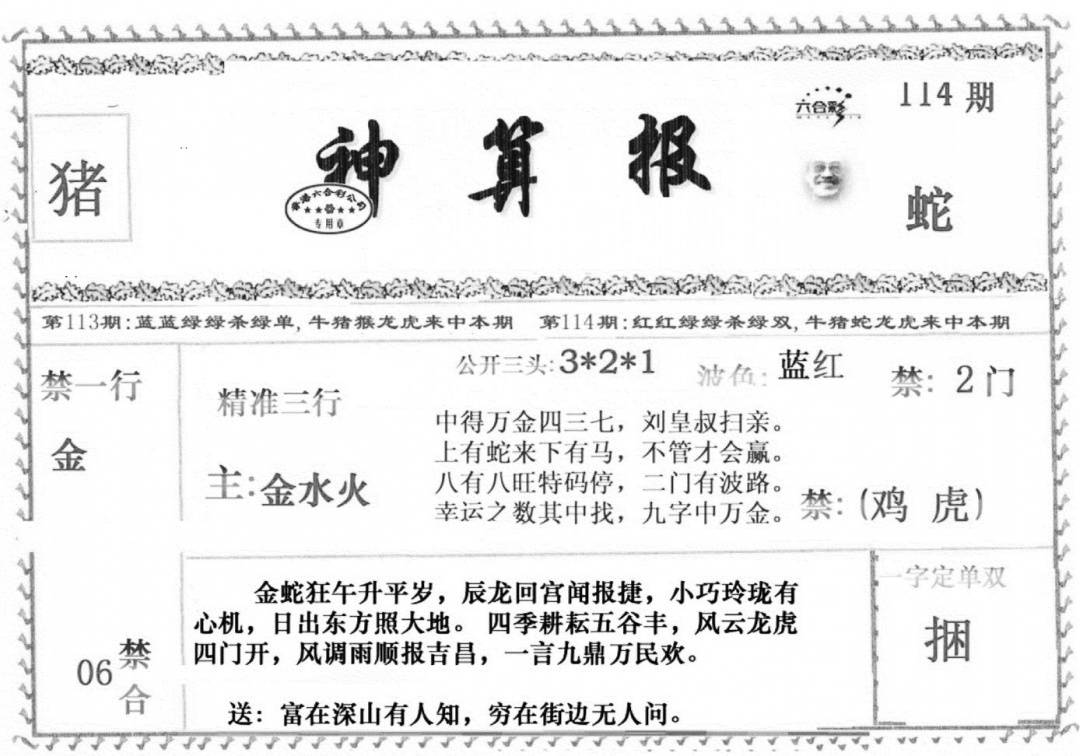 114期
六合彩
猪
神算报
香港六合彩公司
专用章
蛇
第113期:蓝蓝绿绿杀绿单,牛猪猴龙虎来中本期 第114期:红红绿绿杀绿双,牛猪蛇龙虎来中本期
禁一行
金
精准三行
主:金水火
公开三头:3*2*1
波色:蓝红
禁:2门
中得万金四三七，刘皇叔扫亲。
上有蛇来下有马，不管才会赢。
八有八旺特码停，二门有波路。
幸运之数其中找，九字中万金。
禁:(鸡 虎)
06禁合
金蛇狂午升平岁，辰龙回宫闻报捷，小巧玲珑有
心机，日出东方照大地。 四季耕耘五谷丰，风云龙虎
四门开，风调雨顺报吉昌，一言九鼎万民欢。
送：富在深山有人知，穷在街边无人问。
一字定单双
捆